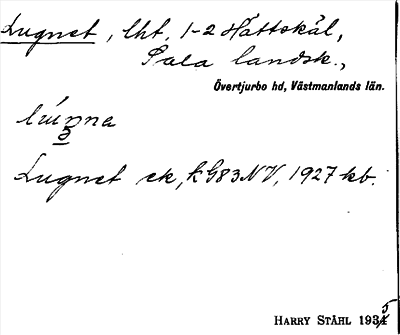 Lugnet, lht. 1-2 Hattskäl,
Sala landsk.,
Övertjurbo hd, Västmanlands län.
Lugnet ek, k G83NV, 1927 kb.
HARRY STÅHL 1935